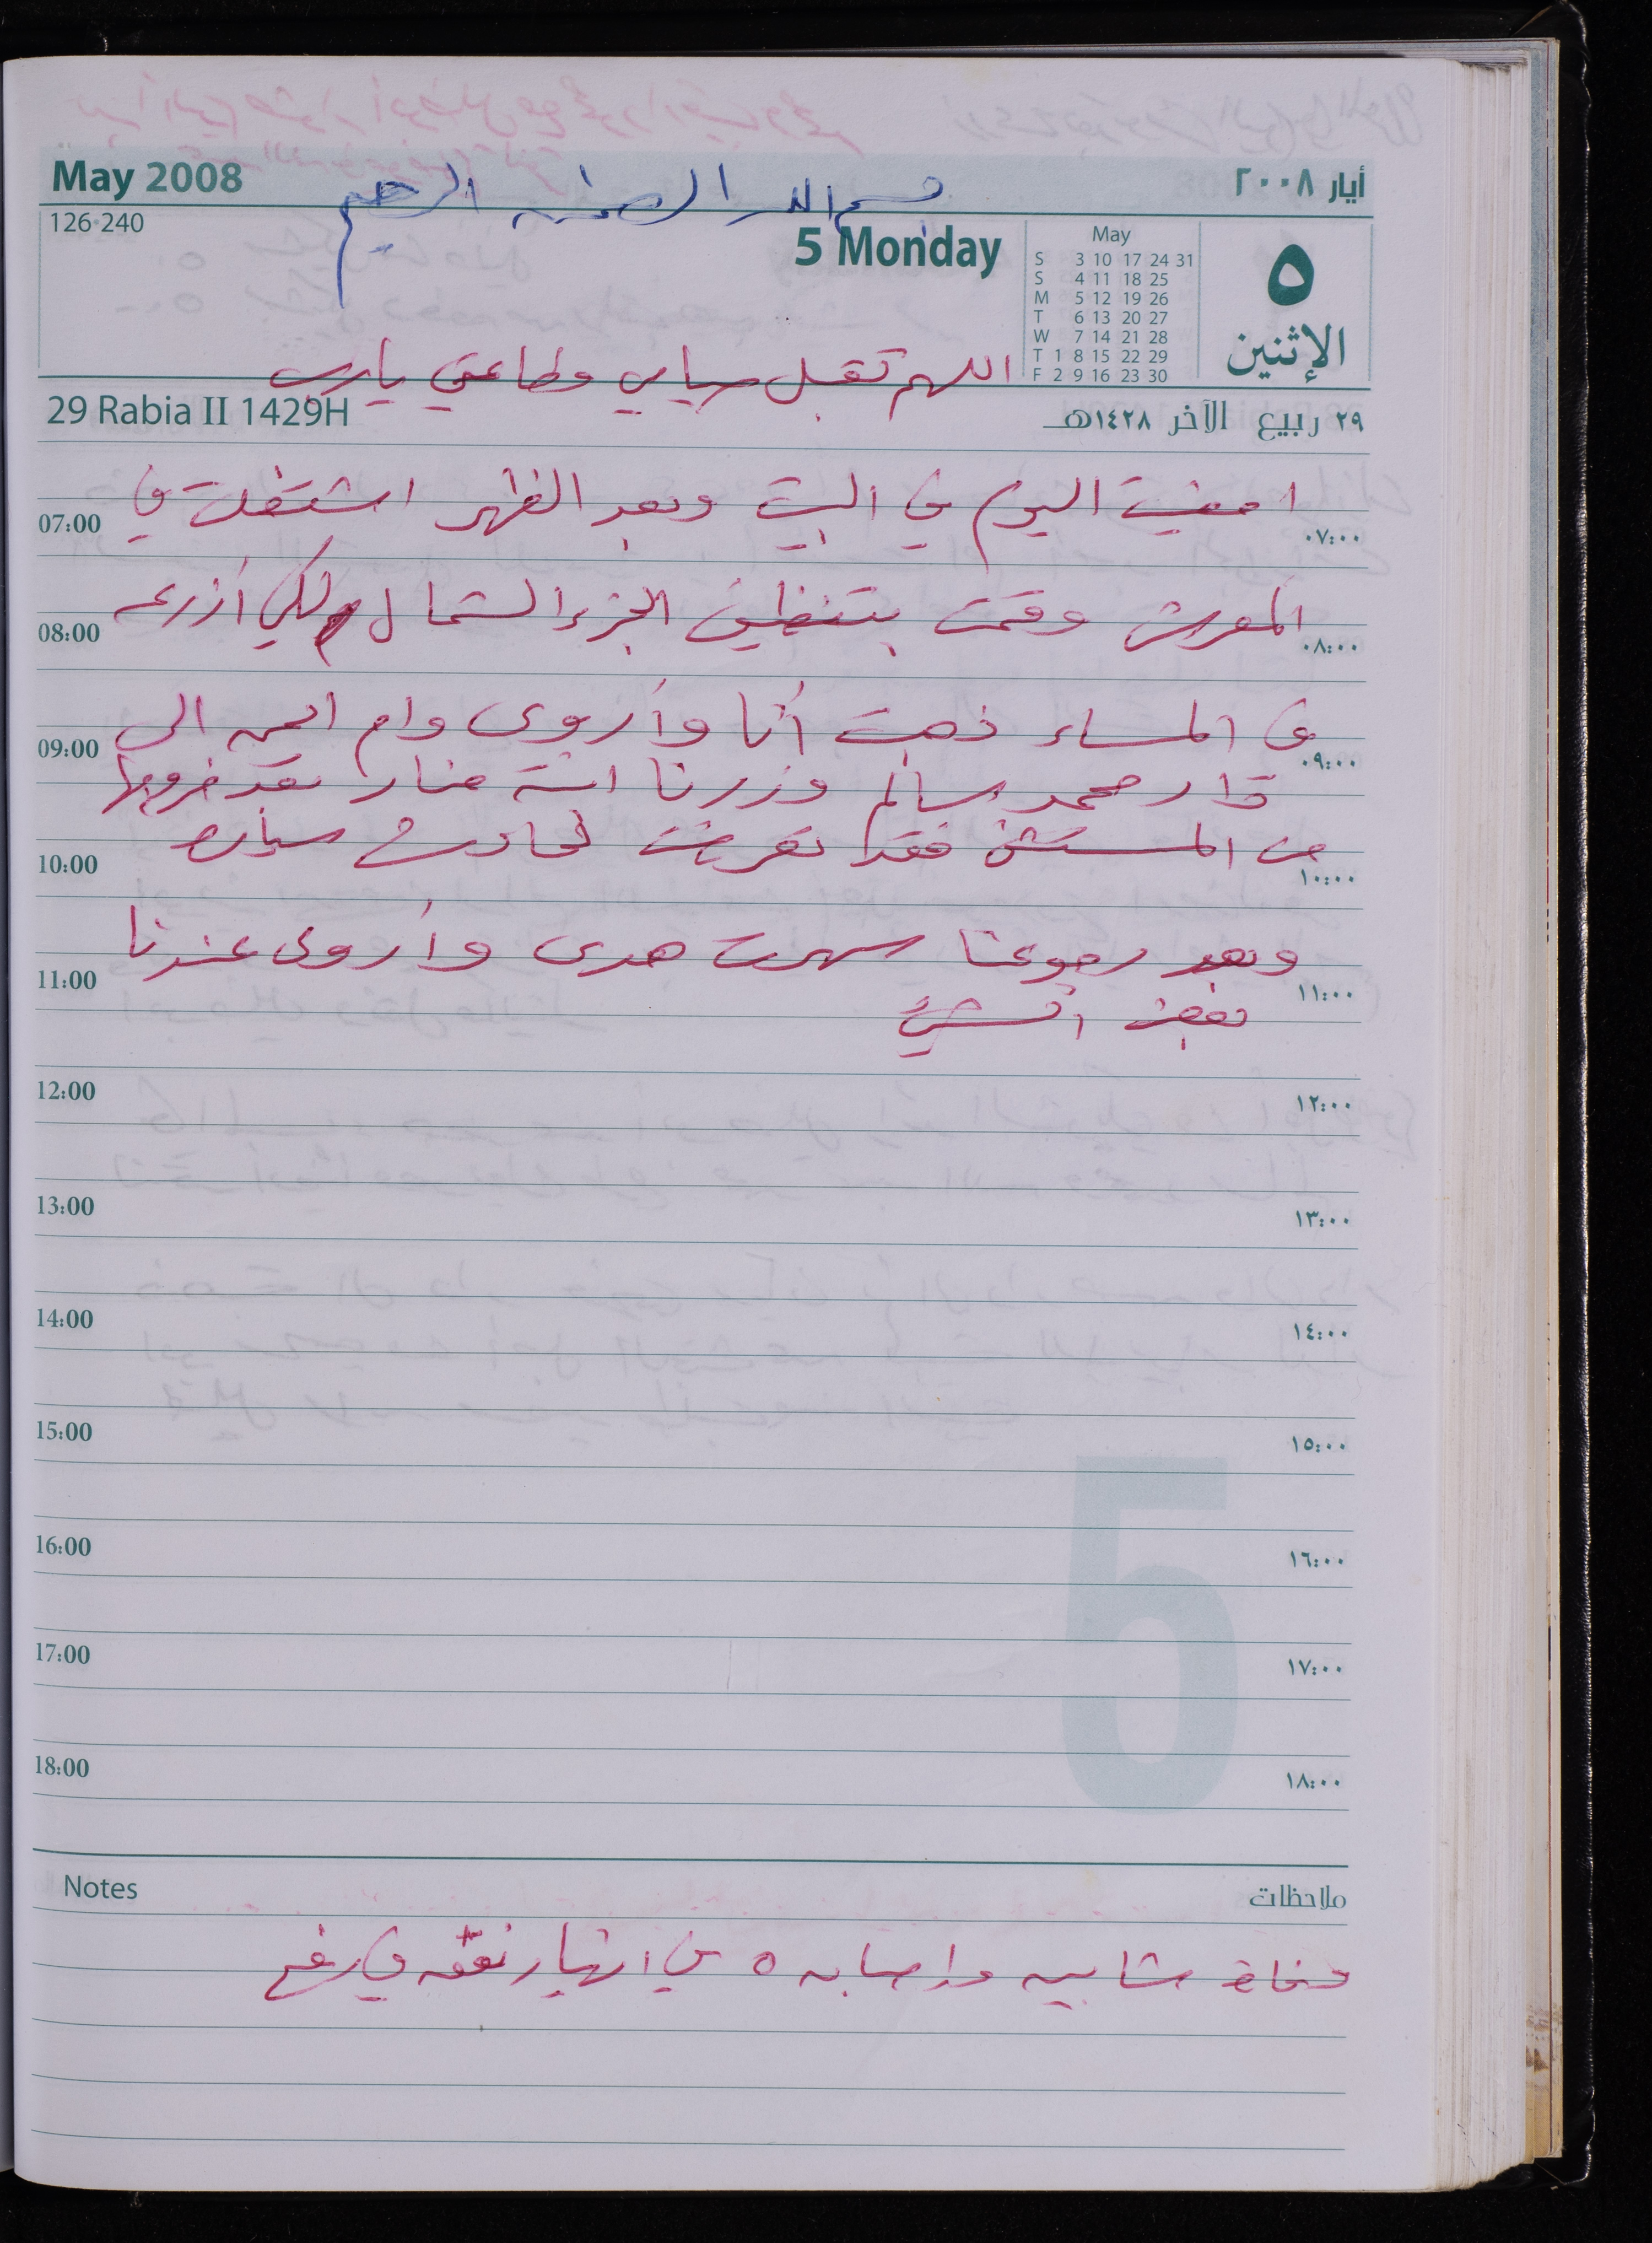 May 2008
أيار ٢٠٠٨
بسم الله الرحمن الرحيم
126-240
5 Monday
May
S 3 10 17 24 31
S 4 11 18 25
M 5 12 19 26
T 6 13 20 27
W 7 14 21 28
T 1 8 15 22 29
F 2 9 16 23 30
٥
الإثنين
اللهم تقبل صيامي وطاعتي يارب
29 Rabia II 1429H
٢٩ ربيع الآخر ١٤٢٨هـ
امضيت اليوم في البيت وبعد الظهر اشتغلت في
07:00 ٠٧:٠٠
المعرش وقمت بتنظيف الجزء الشمالي لكي أزرعه
08:00 ٠٨:٠٠
في المساء ذهبت أنا وأروى وام ايمن الى
09:00 ٠٩:٠٠
دار محمد سالم وزرنا ابنته منار بعد خروجها
من المستشفى فقد تعرضت لحادث سيارة
10:00 ١٠:٠٠
وبعد رجوعنا سهرت هدى وأروى عندنا
11:00 ١١:٠٠
بعض الشيء
12:00 ١٢:٠٠
13:00 ١٣:٠٠
14:00 ١٤:٠٠
15:00 ١٥:٠٠
5
16:00 ١٦:٠٠
17:00 ١٧:٠٠
18:00 ١٨:٠٠
Notes
ملاحظات
وفاة شابين واصابه ٥ في انهيار نفق في رفح